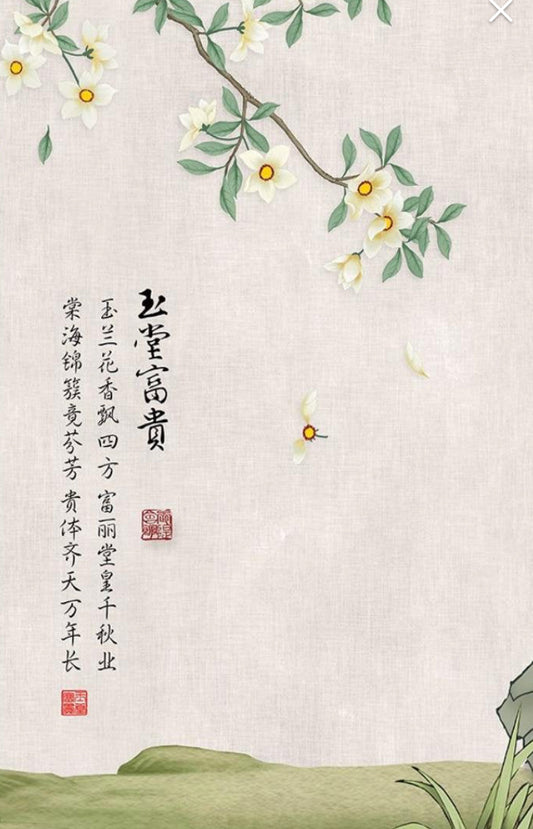 玉堂富貴
玉兰花香飘四方 富丽堂皇千秋业
棠海锦簇竟芬芳 贵体齐天万年长